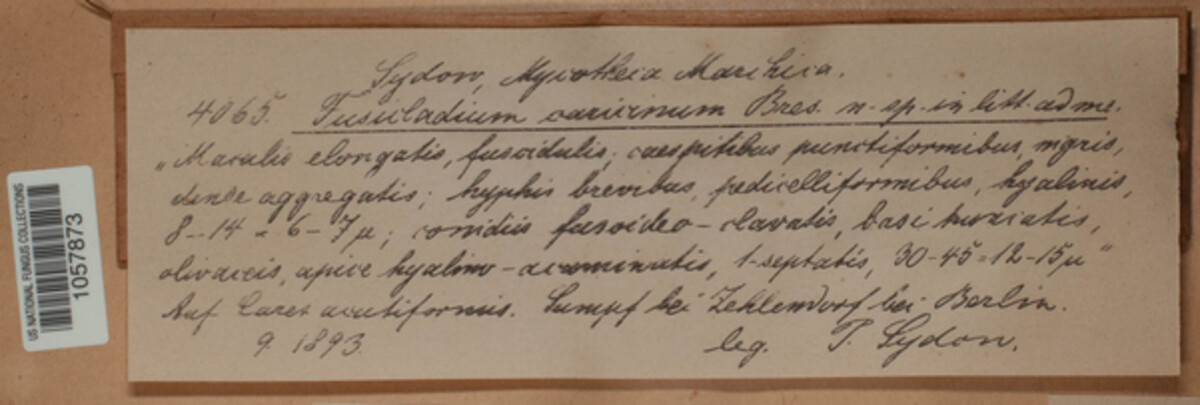 US NATIONAL FUNGUS COLLECTIONS
1057873
Sydow, Mycotheca Marchica.
4065. Fusicladium caricinum Bres. n. sp. in litt. ad me.
„Maculis elongatis, fuscidulis; caespitibus punctiformibus, nigris,
dense aggregatis; hyphis brevibus, pedicelliformibus, hyalinis,
8–14 = 6–7 µ; conidiis fusoideo–clavatis, basi truncatis,
olivaceis, apice hyalino–acuminatis, 1-septatis, 30–45 = 12–15 µ“
Auf Carex acutiformis. Sumpf bei Zehlendorf bei Berlin.
9. 1893. leg. P. Sydow.